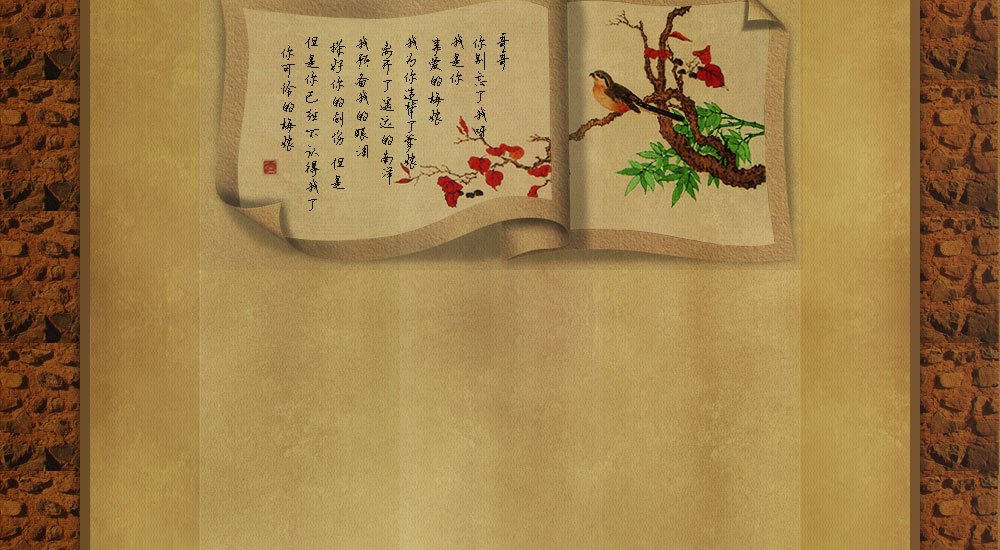 哥哥
你别忘了我呀
我是你
亲爱的梅娘
我为你违背了爹娘
离开了遥远的南洋
我预备我的眼泪
擦好你的创伤 但是
但是你已经不认得我了
你可怜的梅娘